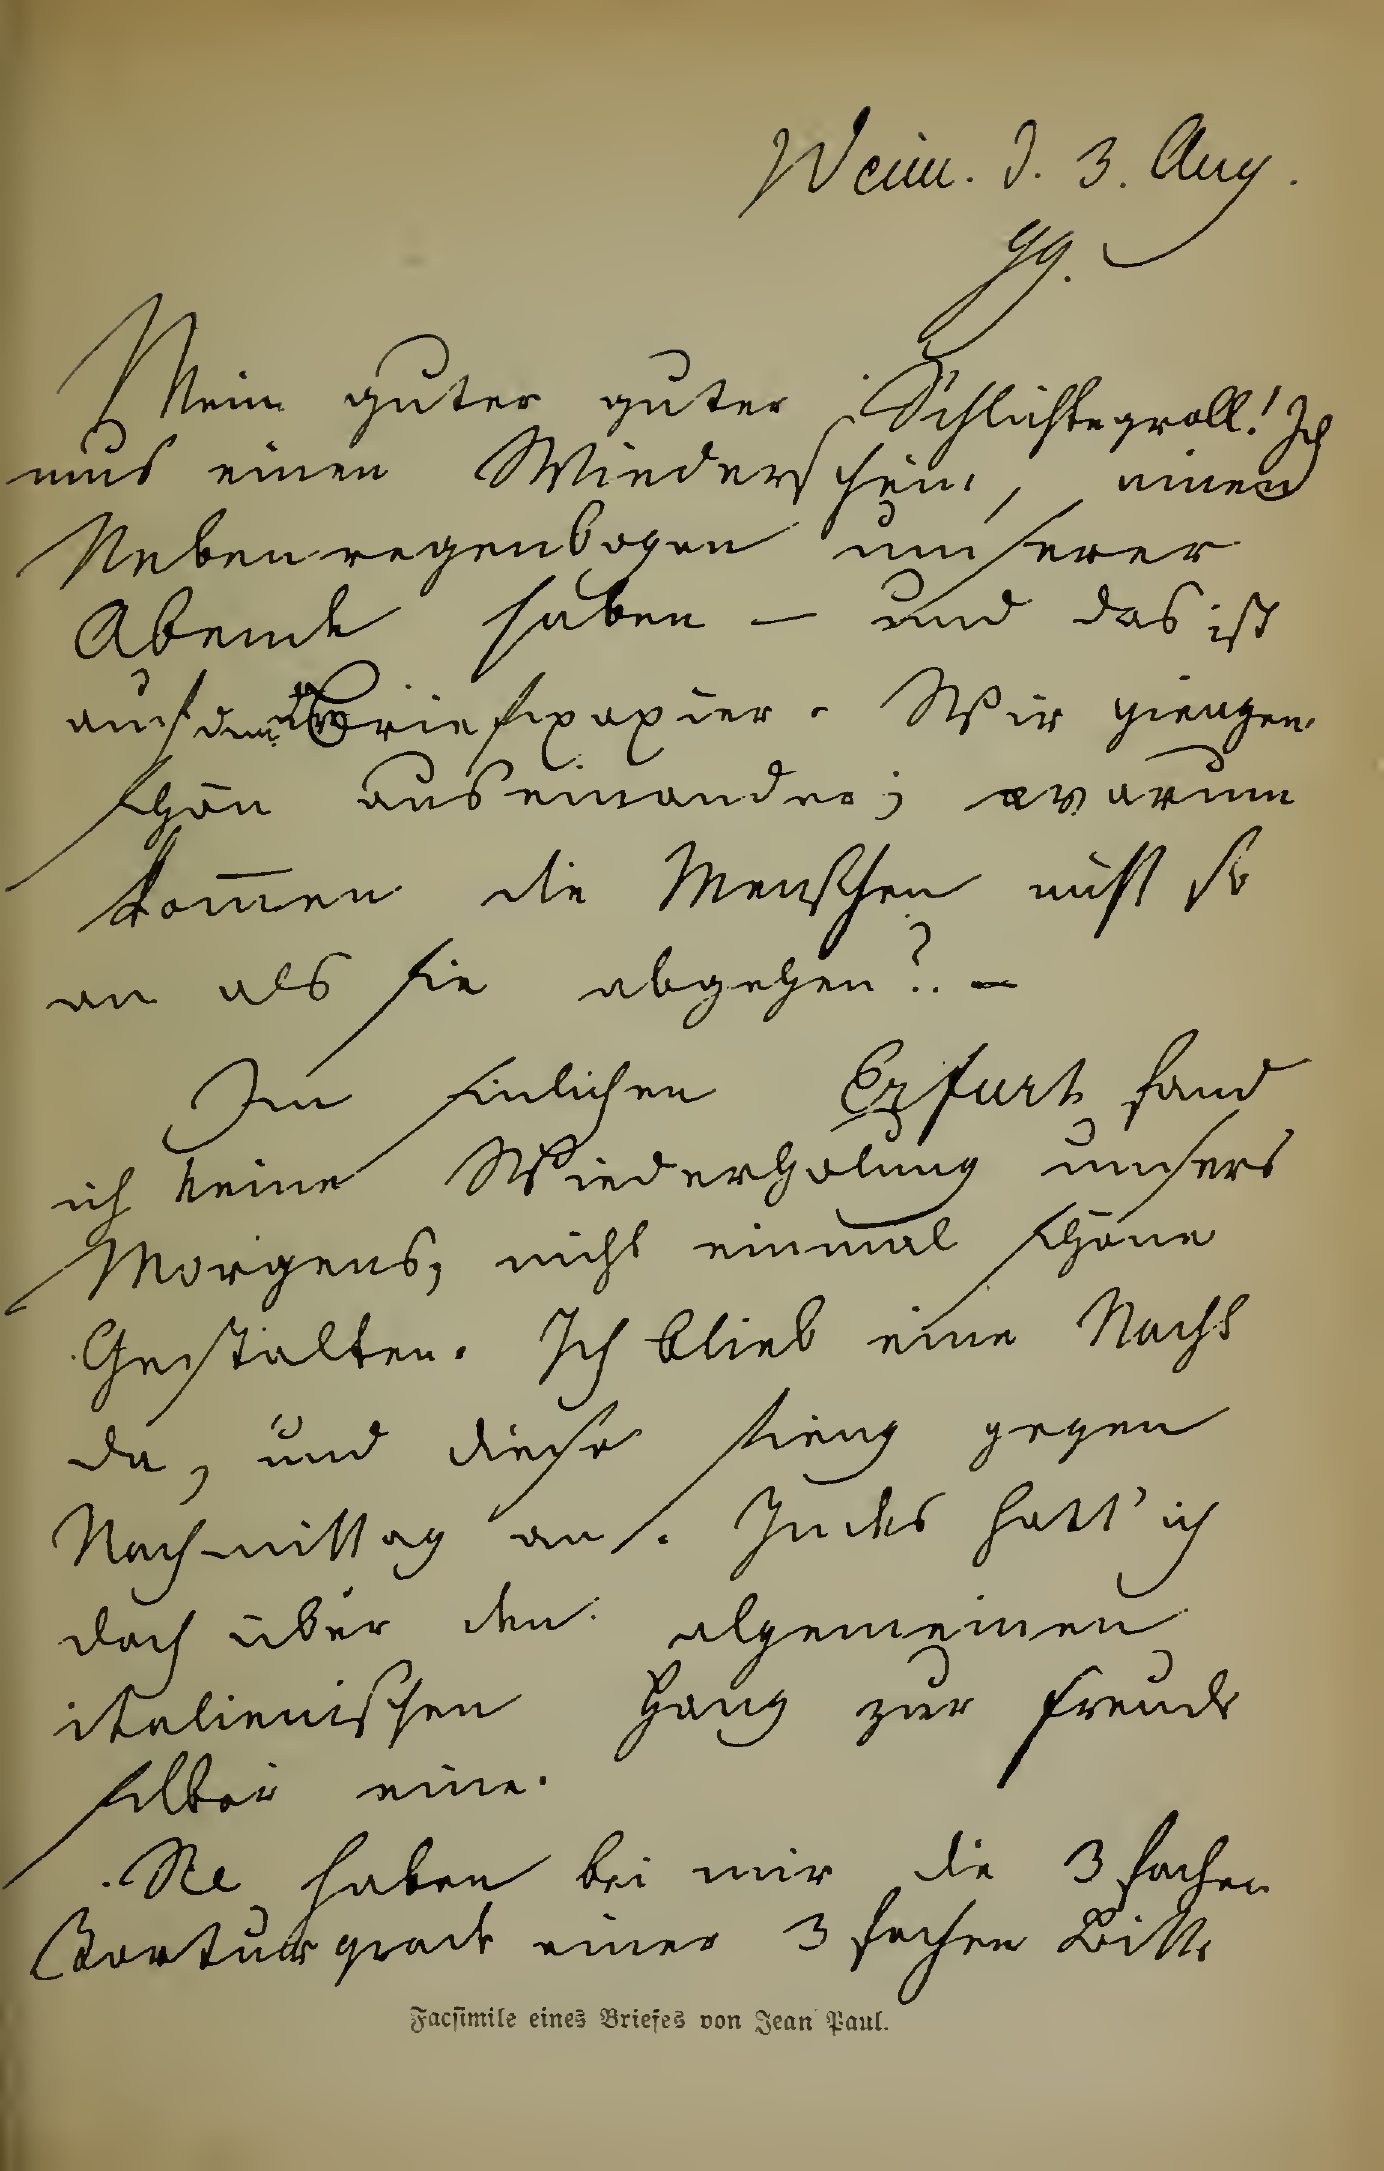 Weim. d. 3. Aug.
99.
Mein guter guter Schlichtegroll! Ich
mus einen Wiederschein, einen
Nebenregenbogen unserer
Abende haben — und das ist
auf dem Briefpapier. Wir giengen
schön auseinander; warum
kom̅en die Menschen nicht so
an als sie abgehen? —
Im sinlichen Erfurt fand
ich keine Wiederholung unsers
Morgens, nicht einmal schöne
Gestalten. Ich blieb eine Nacht
da, und diese fieng gegen
Nachmittag an. Indes hatt' ich
doch über den algemeinen
italienischen Hang zur Freude
selber eine.
Sie haben bei mir die 3 fachen
Torturgrade einer 3 fachen Bitte
Facsimile eines Briefes von Jean Paul.